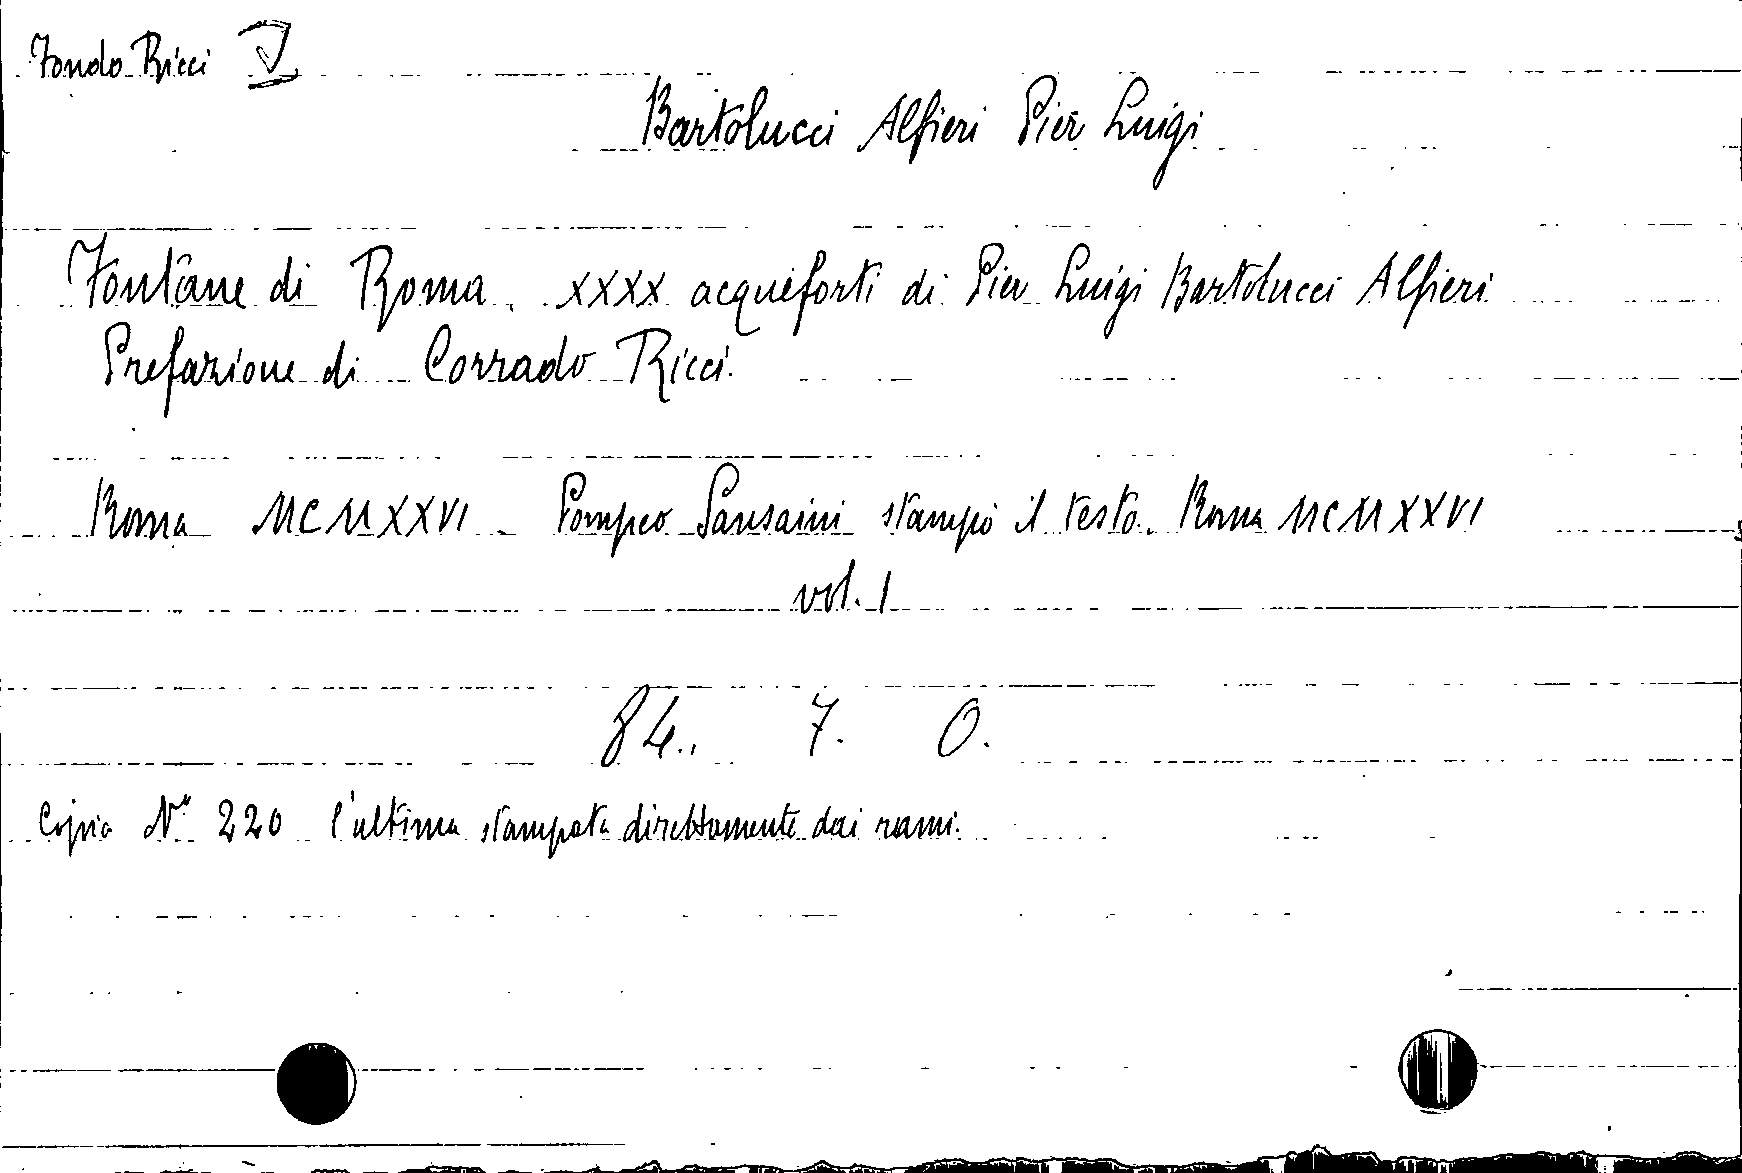 Fondo Ricci V
Bartolucci Alfieri Pier Luigi
Fontane di Roma. XXXX acqueforti di Pier Luigi Bartolucci Alfieri
Prefazione di Corrado Ricci.
Roma MCMXXVI. Pompeo Sansaini stampò il testo. Roma MCMXXVI
vol. 1
84. 7. O.
Copia N° 220 l'ultima stampata direttamente dai rami.